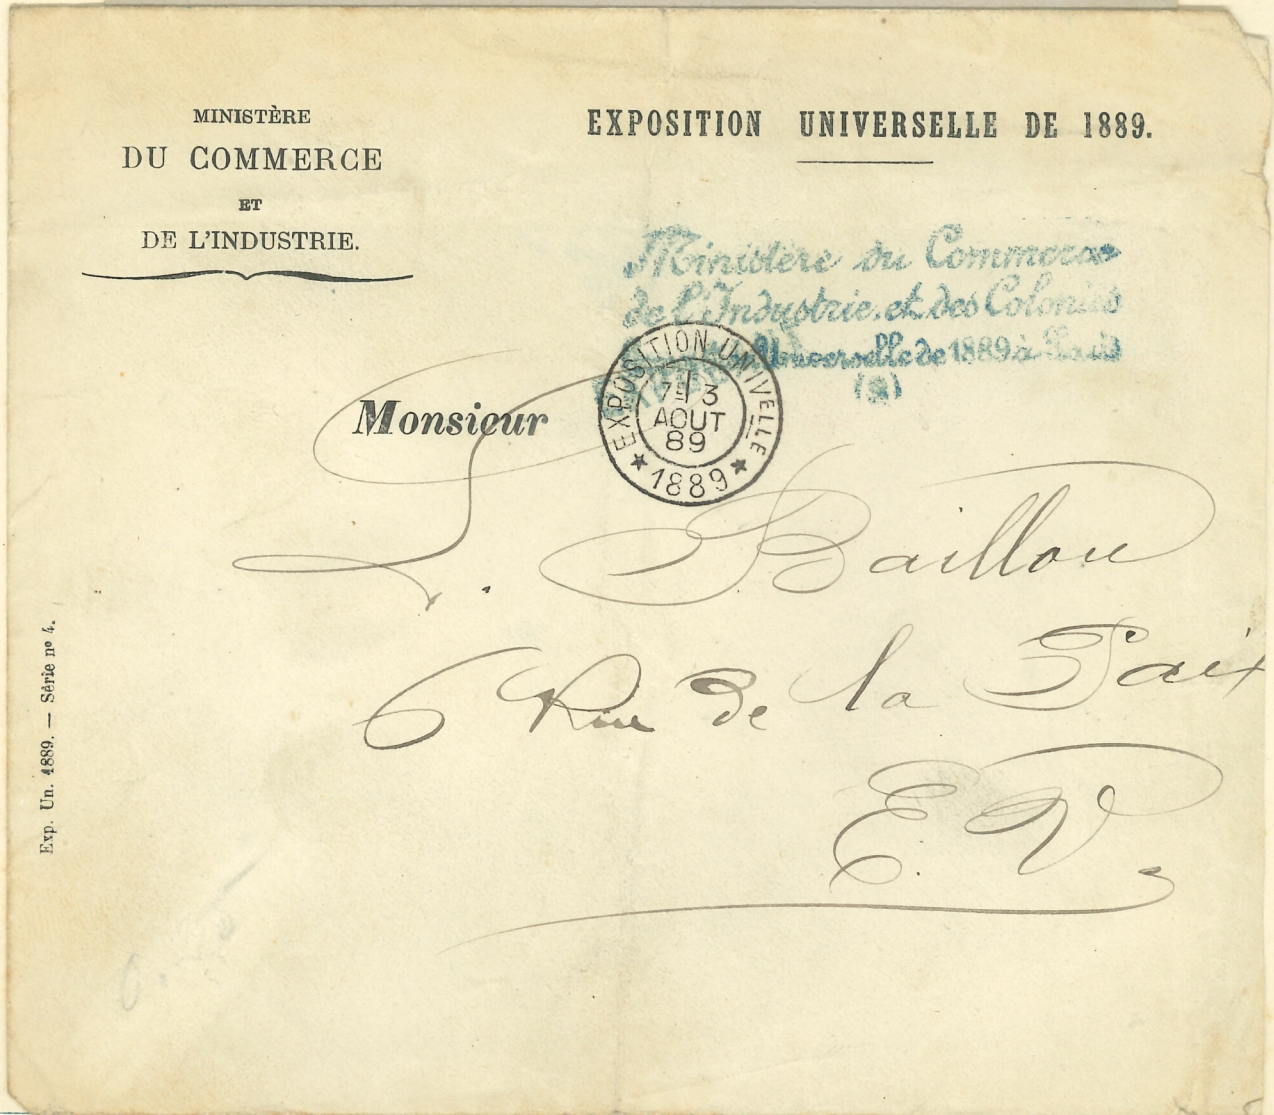 MINISTÈRE
DU COMMERCE
ET
DE L'INDUSTRIE.
EXPOSITION UNIVERSELLE DE 1889.
Ministère du Commerce
de l'Industrie et des Colonies
Universelle de 1889 à Paris
(8)
EXPOSITION UNIVELLE
7E 3
AOUT
89
★ 1889 ★
Monsieur
L. Baillon
6 Rue de la Paix
E. V.
Exp. Un. 1889. — Série nº 4.